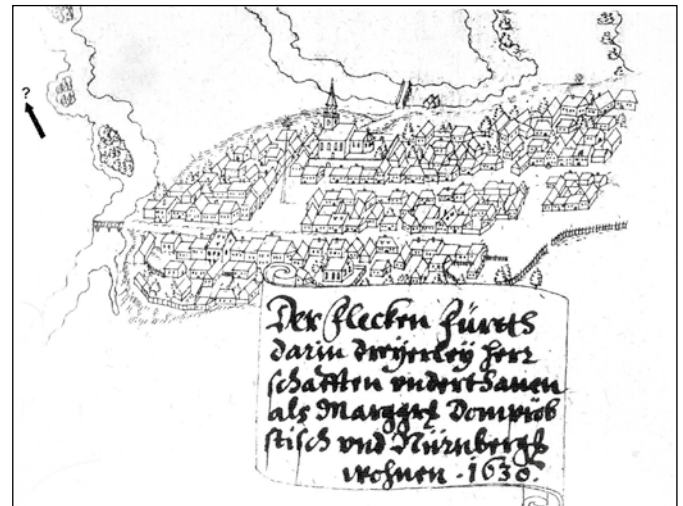 ?
Der Flecken Fürth
darin dreyerley herr
schafften underthanen
als Marggrf Dompröb
stisch und Nürnbergs
wohnen . 1630.